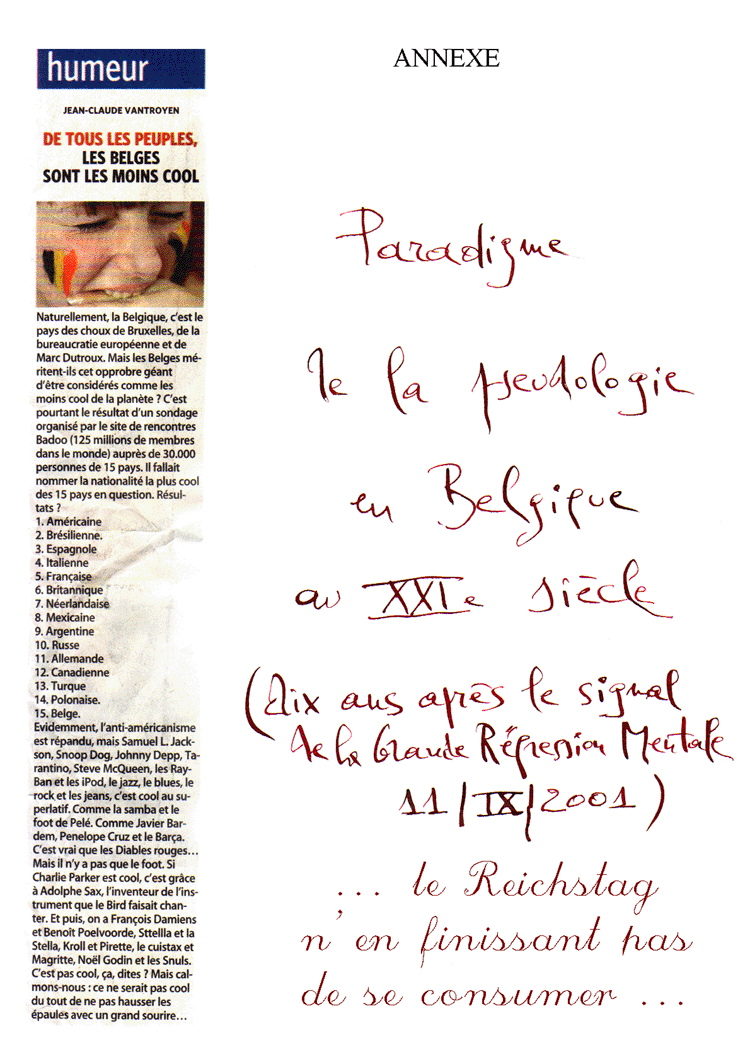 ANNEXE
humeur
JEAN-CLAUDE VANTROYEN
DE TOUS LES PEUPLES,
LES BELGES
SONT LES MOINS COOL
Naturellement, la Belgique, c'est le
pays des choux de Bruxelles, de la
bureaucratie européenne et de
Marc Dutroux. Mais les Belges mé-
ritent-ils cet opprobre géant
d'être considérés comme les
moins cool de la planète ? C'est
pourtant le résultat d'un sondage
organisé par le site de rencontres
Badoo (125 millions de membres
dans le monde) auprès de 30.000
personnes de 15 pays. Il fallait
nommer la nationalité la plus cool
des 15 pays en question. Résul-
tats ?
1. Américaine
2. Brésilienne.
3. Espagnole
4. Italienne
5. Française
6. Britannique
7. Néerlandaise
8. Mexicaine
9. Argentine
10. Russe
11. Allemande
12. Canadienne
13. Turque
14. Polonaise.
15. Belge.
Evidemment, l'anti-américanisme
est répandu, mais Samuel L. Jack-
son, Snoop Dog, Johnny Depp, Ta-
rantino, Steve McQueen, les Ray-
Ban et les iPod, le jazz, le blues, le
rock et les jeans, c'est cool au su-
perlatif. Comme la samba et le
foot de Pelé. Comme Javier Bar-
dem, Penelope Cruz et le Barça.
C'est vrai que les Diables rouges…
Mais il n'y a pas que le foot. Si
Charlie Parker est cool, c'est grâce
à Adolphe Sax, l'inventeur de l'ins-
trument que le Bird faisait chan-
ter. Et puis, on a François Damiens
et Benoît Poelvoorde, Sttellla et la
Stella, Kroll et Pirette, le cuistax et
Magritte, Noël Godin et les Snuls.
C'est pas cool, ça, dites ? Mais cal-
mons-nous : ce ne serait pas cool
du tout de ne pas hausser les
épaules avec un grand sourire…
Paradigme
de la pseudologie
en Belgique
au XXIe siècle
(dix ans après le signal
de la Grande Régression Mentale
11/IX/2001)
... le Reichstag
n'en finissant pas
de se consumer ...